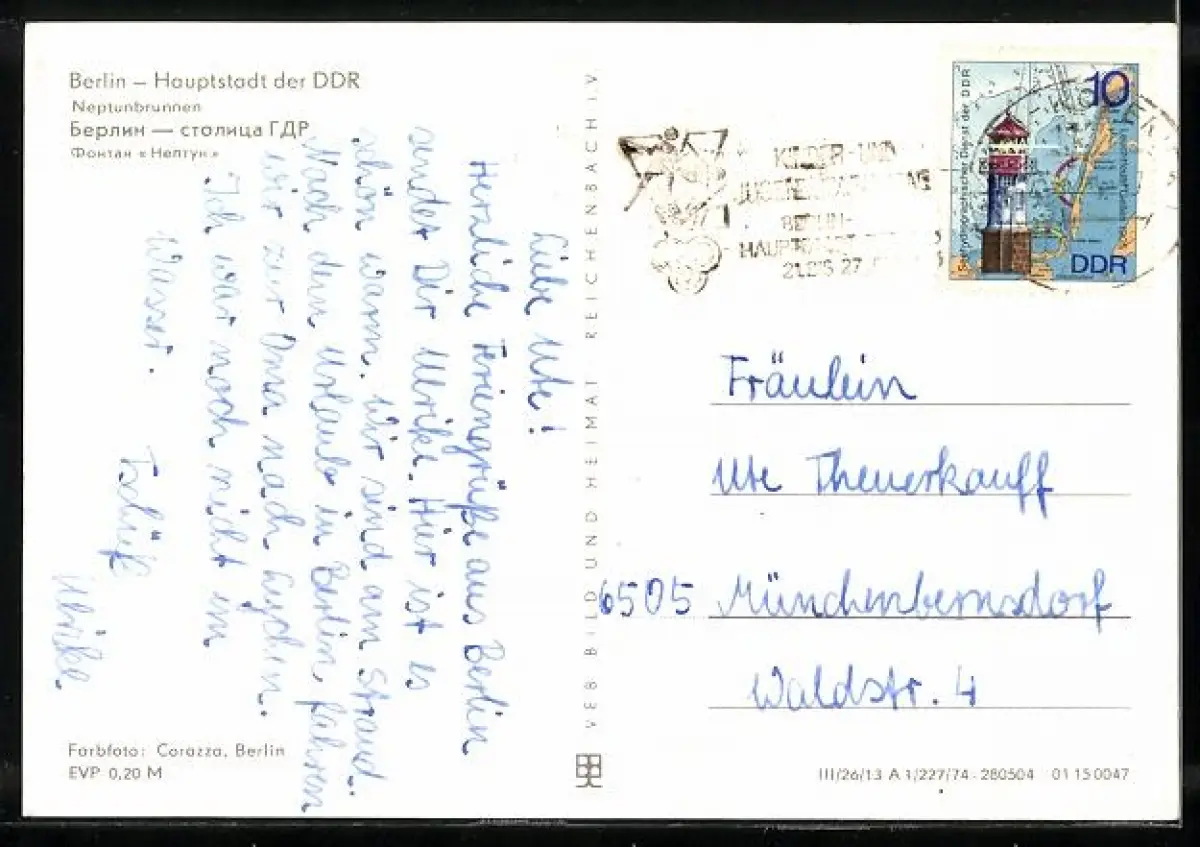 Berlin – Hauptstadt der DDR
Neptunbrunnen
Берлин — столица ГДР
Фонтан «Нептун»
Liebe Ute!
Herzliche Feriengrüße aus Berlin
sendet Dir Ulrike. Hier ist es
schön warm. Wir sind am Strand.
Nach dem Urlaub in Berlin, fahren
wir zur Oma nach Lychen.
Ich war noch nicht im
Wasser.
Tschüß
Ulrike.
Farbfoto: Corazza, Berlin
EVP 0,20 M
VEB BILD UND HEIMAT REICHENBACH I.V
KINDER- UND
BERLIN-
10
Seehydrographischer Dienst der DDR
DDR
Fräulein
Ute Theuerkauff
6505 Münchenbernsdorf
Waldstr. 4
III/26/13 A 1/227/74 - 280504 01 15 0047